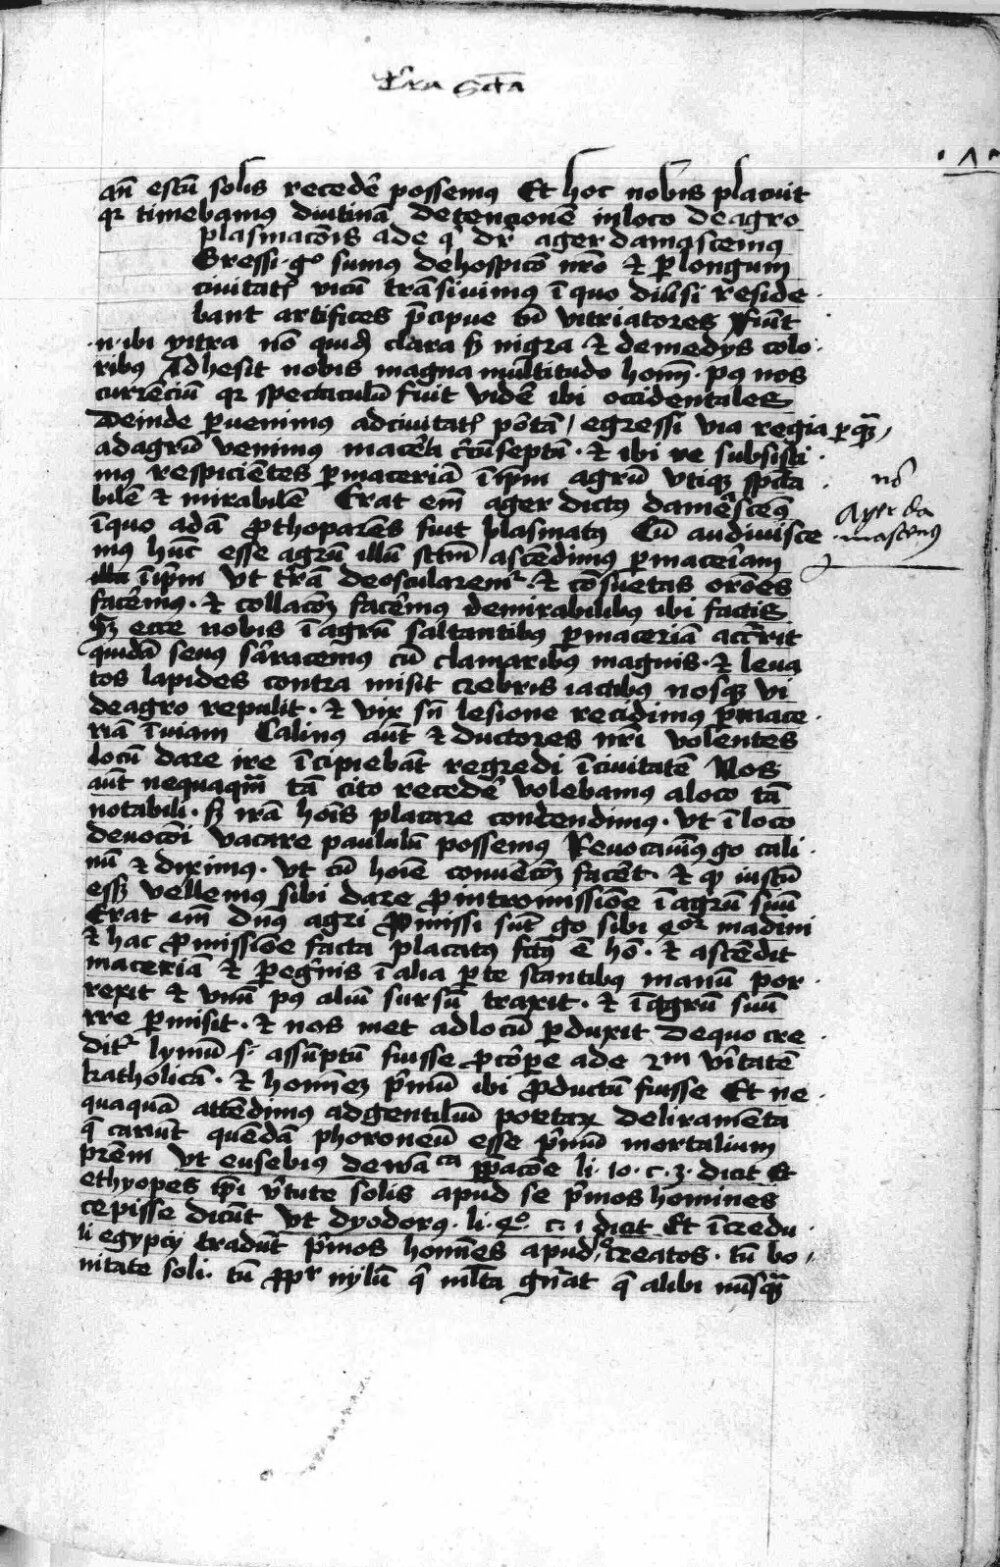 t'ra Scta
·1·
an̄ estū solis recedē possemus Et hoc nobis placuit
qr timebamus diutinā detencionē in loco de agro
plasmacōis ade q' dr̄ ager damascenus
Gressi · g° sumus de hospicō nr̄o & p longum
civitatꝭ vicū trāsivimus ī quo diūsi reside
bant artifices p̄cipue tn̄ vitriatores ffiūt
·n· ibi vitra nō quid' clara sꝫ nigra & de medys colo
ribus Adhesit nobis magna multitudo hoīm · pꝰ nos
currēciū qr spectaculū fuit vidē ibi occidentales
Deinde pvenimus ad civitatꝭ pōtā / egressi via regia p quā /
ad agrū venimus macēia cōnseptū · & ibi ne subsisti
mus respiciētes p maceriā ī ip̄m agrū vtiqꝫ spcta
bilē & mirabilē Erat em̄ ager dictus damēscēꝰ
ī quo adā prothoparēs fuit plasmatꝰ Cū audivisce
nō
Ager da
mascenꝰ
mus hūc esse agrū illū sctm̄ ascēdimus p macēiam
illā ī ip̄m vt tr̄ā deoscularemr & cōsuetas orōes
facēmus · & collacōꝫ facēmus de mirabilibus ibi factis
Sꝫ ecce nobis ī agrū saltantibus p maceriā accr̄rit
quidā seuus saracenus cū clamoribus magnis · & leua
tos lapides contra misit crebris iactibus nosqꝫ vi
de agro repulit · & vix sn̄ lesione recidimus p mace
riā ī viam Calinus aūt & ductores nr̄i volentes
locū dare ire īcipiebāt regredi ī civitatē Nos
aūt nequaqm̄ tā cito recedē volebamus a loco tā
notabili · sꝫ irā hoīs placare contendimus · vt ī loco
devocōi vacare paululū possemus Revocavimꝰ go cali
nū & diximus · vt cū hoīe convēcōꝫ facēt · & qꝫ iustū
essꝫ vellemus sibi dare p intromissiōe ī agrū suū
Erat em̄ dn̄s agri promissi sūt go sibi qor madini
& hac promissiōe facta placatus fctꝰ ē hō · & ascēdit
maceriā & pegrīnis ī alia pte stantibus manū por
rexit & vnū pꝰ aliū sursū traxit · & ī agrū suū
ire pmisit · & nos met ad locū pduxit De quo cre
ditr lymū f· assūptū fuisse p corpe ade 2m vītatē
katholicā · & hominēꝫ p̄mū ibi productū fuisse Et ne
quaquā attēdimus ad gentiliū poetaꝝ deliramēta
q' canūt quēdā phoroneū esse p̄mū mortalium
prēm vt eusebius de ewāca ppacōe li· 10· c· 3· dicit Et
ethyopes tpī v̄tute solis apud se p̄mos homines
cepisse dicūt vt dyodorus · li· 4°· c· 1 dicit Et īcredu
li egypcy tradūt p̄mos homīes apud se creatos · tū bo
nitate soli · tū ppr nylū q' ml̄ta gn̄at q' alibi nūsqꝫ